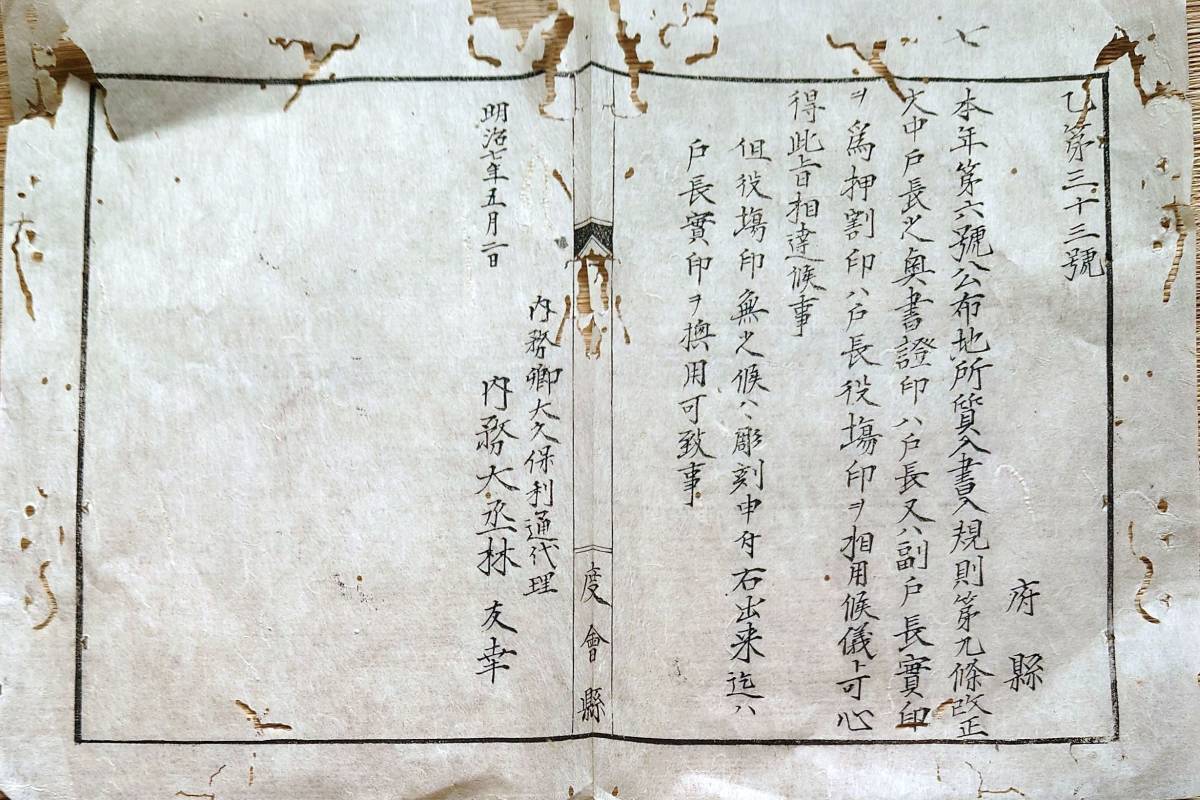 七
乙第三十三號
府縣
本年第六號公布地所質入書入規則第九條改正
大中戸長之奥書證印ハ戸長又ハ副戸長實印
ヲ爲押割印ハ戸長役場印ヲ相用候儀ト可心
得此旨相達候事
但役場印無之候ハヽ彫刻申付右出来迄ハ
戸長實印ヲ換用可致事
度會縣
内務卿大久保利通代理
内務大丞林友幸
明治七年五月二日